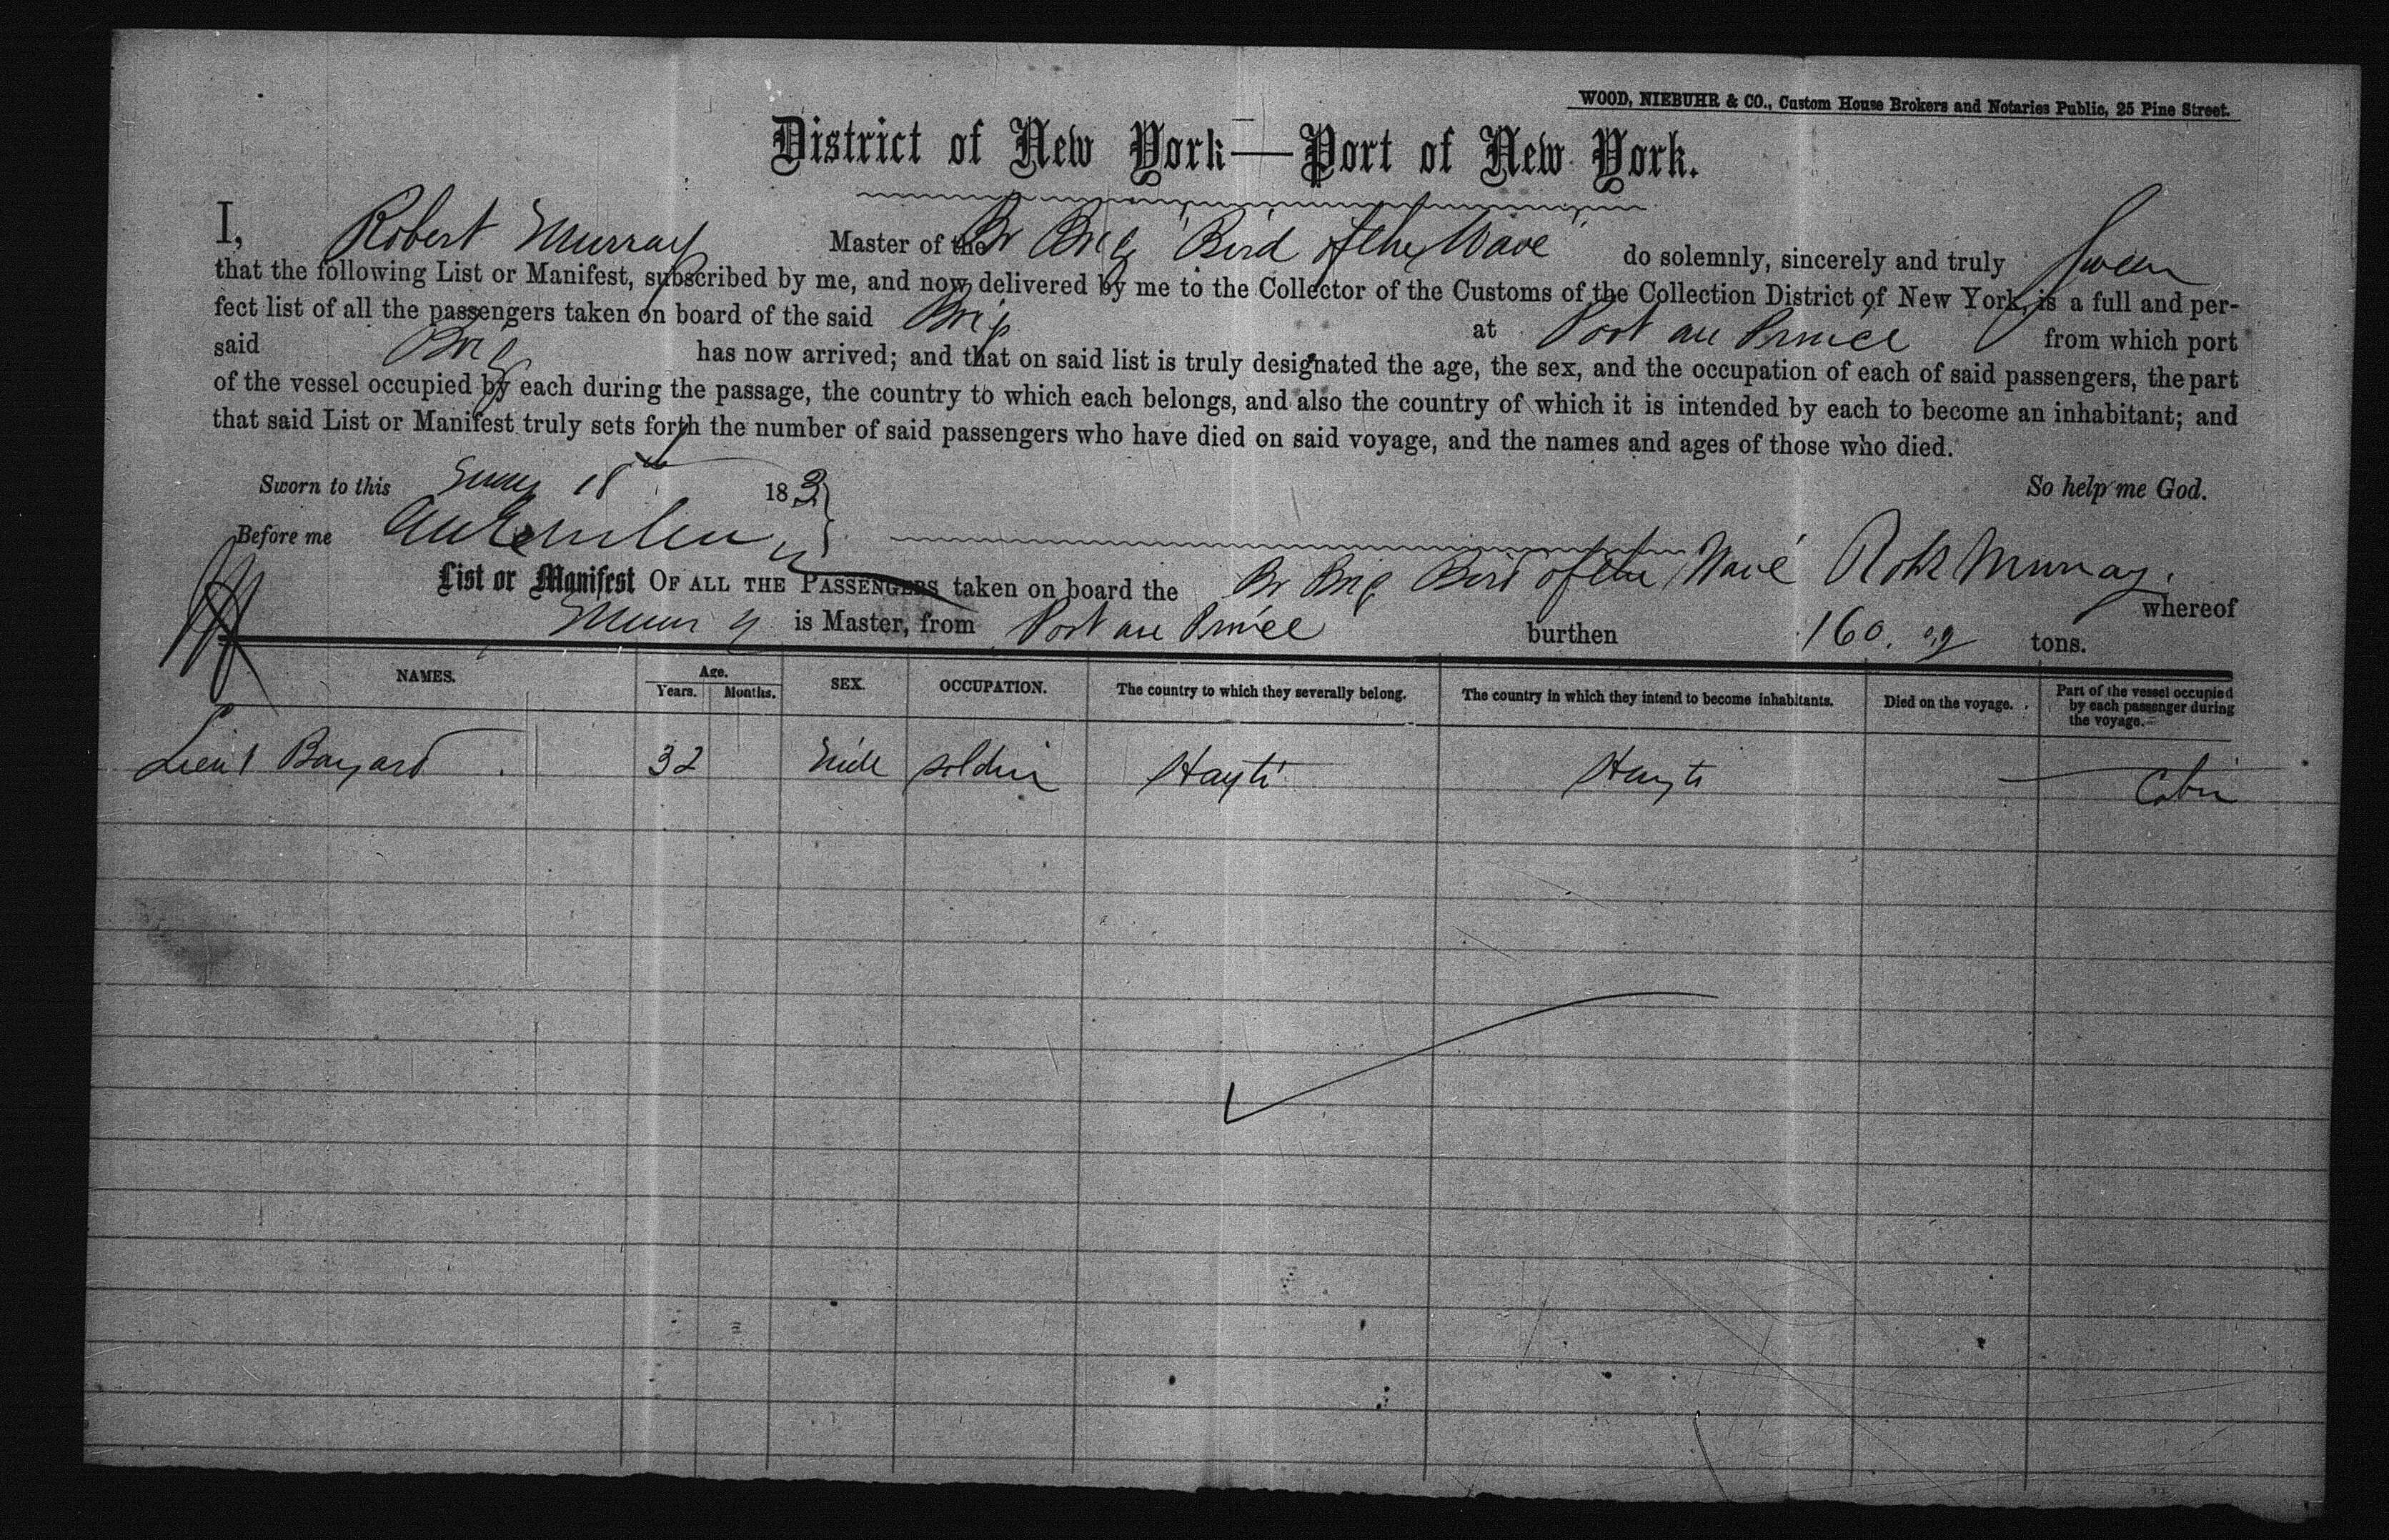 WOOD, NIEBUHR & CO., Custom House Brokers and Notaries Public, 25 Pine Street.
District of New York—Port of New York.
I, Robert Murray Master of the Br Brig "Bird of the Wave" do solemnly, sincerely and truly Swear
that the following List or Manifest, subscribed by me, and now delivered by me to the Collector of the Customs of the Collection District of New York, is a full and per-
fect list of all the passengers taken on board of the said Brig at Port au Prince from which port
said Brig has now arrived; and that on said list is truly designated the age, the sex, and the occupation of each of said passengers, the part
of the vessel occupied by each during the passage, the country to which each belongs, and also the country of which it is intended by each to become an inhabitant; and
that said List or Manifest truly sets forth the number of said passengers who have died on said voyage, and the names and ages of those who died.
Sworn to this 18th 18 So help me God.
Before me
List or Manifest OF ALL THE PASSENGERS taken on board the Br Brig Bird of the Wave Robt Murray. whereof
Murray is Master, from Port au Prince burthen 160. tons.
NAMES. Age. Years. Months. SEX. OCCUPATION. The country to which they severally belong. The country in which they intend to become inhabitants. Died on the voyage. Part of the vessel occupied by each passenger during the voyage.
Lieut Bayard 32 Male soldier Hayti Hayti Cabin